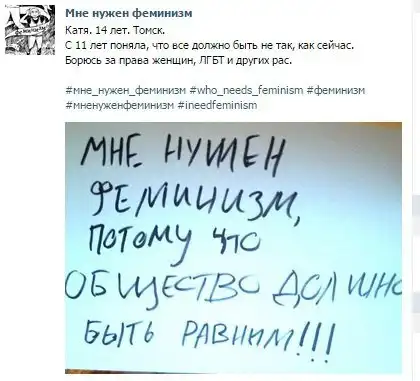 Мне нужен феминизм
Катя. 14 лет. Томск.
С 11 лет поняла, что все должно быть не так, как сейчас.
Борюсь за права женщин, ЛГБТ и других рас.
#мне_нужен_феминизм #who_needs_feminism #феминизм
#мненуженфеминизм #ineedfeminism
МНЕ НУЖЕН
ФЕМИНИЗМ,
ПОТОМУ ЧТО
ОБЩЕСТВО ДОЛЖНО
БЫТЬ РАВНИМ!!!